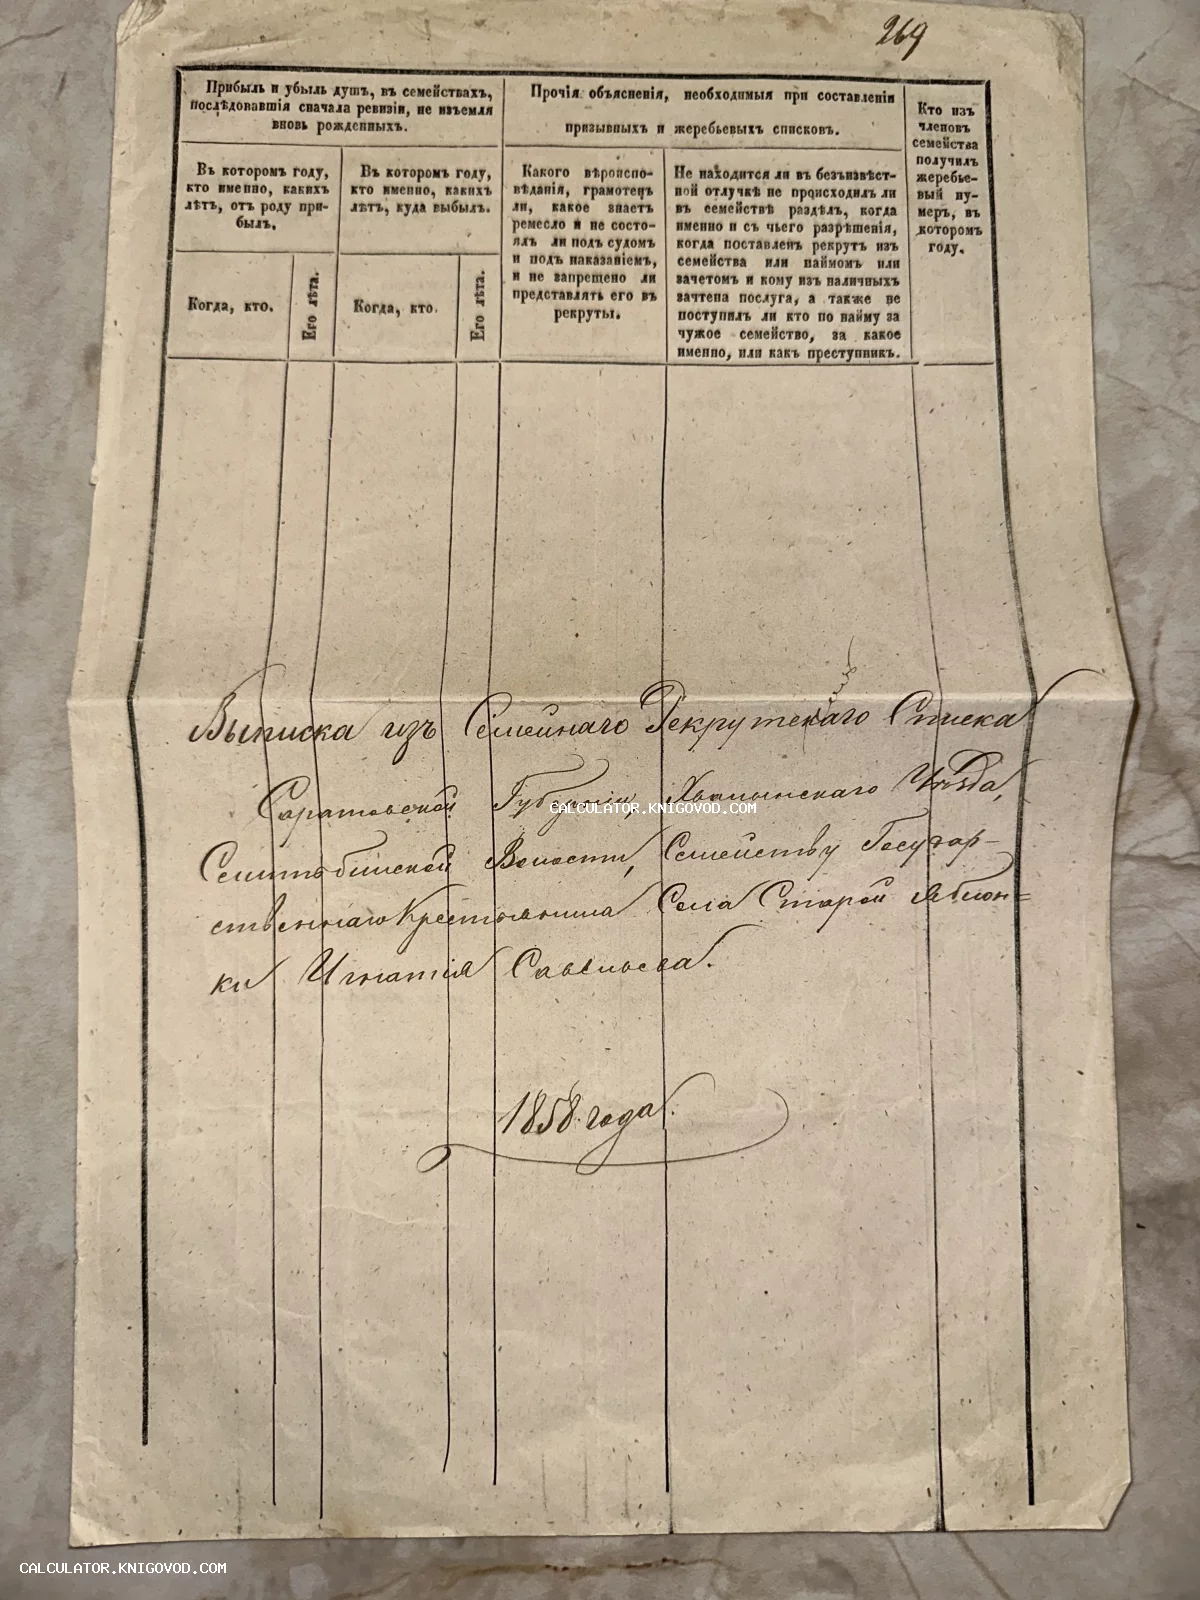 269
Прибыль и убыль душъ, въ семействахъ,
послѣдовавшія сначала ревизіи, не изъемля
вновь рожденныхъ.
Въ которомъ году,
кто именно, какихъ
лѣтъ, отъ роду при-
былъ.
Въ которомъ году,
кто именно, какихъ
лѣтъ, куда выбылъ.
Когда, кто.
Его лѣта.
Когда, кто.
Его лѣта.
Прочія объясненія, необходимыя при составленіи
призывныхъ и жеребьевыхъ списковъ.
Какого вѣроиспо-
вѣданія, грамотенъ
ли, какое знаетъ
ремесло и не состо-
ялъ ли подъ судомъ
и подъ наказаніемъ,
и не запрещено ли
представлять его въ
рекруты.
Не находится ли въ безъизвѣст-
ной отлучкѣ не происходилъ ли
въ семействѣ раздѣлъ, когда
именно и съ чьего разрѣшенія,
когда поставленъ рекрутъ изъ
семейства или наймомъ или
зачетомъ и кому изъ наличныхъ
зачтена послуга, а также не
поступилъ ли кто по найму за
чужое семейство, за какое
именно, или какъ преступникъ.
Кто изъ
членовъ
семейства
получилъ
жеребье-
вый ну-
меръ, въ
которомъ
году.
Выписка изъ Семейнаго Рекрутскаго Списка
Саратовской Губерніи, Хвалынскаго Уѣзда,
Волости, Семейству Государ-
ственнаго Крестьянина Села Старой Яблон-
ки Игнатія Савельева.
1858 года.
CALCULATOR.KNIGOVOD.COM
CALCULATOR.KNIGOVOD.COM